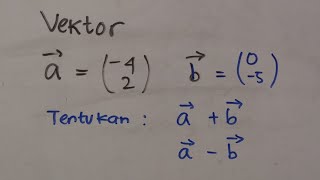 Vektor
$\vec{a} = \begin{pmatrix} -4 \\ 2 \end{pmatrix}$ $\vec{b} = \begin{pmatrix} 0 \\ -5 \end{pmatrix}$
Tentukan : $\vec{a} + \vec{b}$
$\vec{a} - \vec{b}$